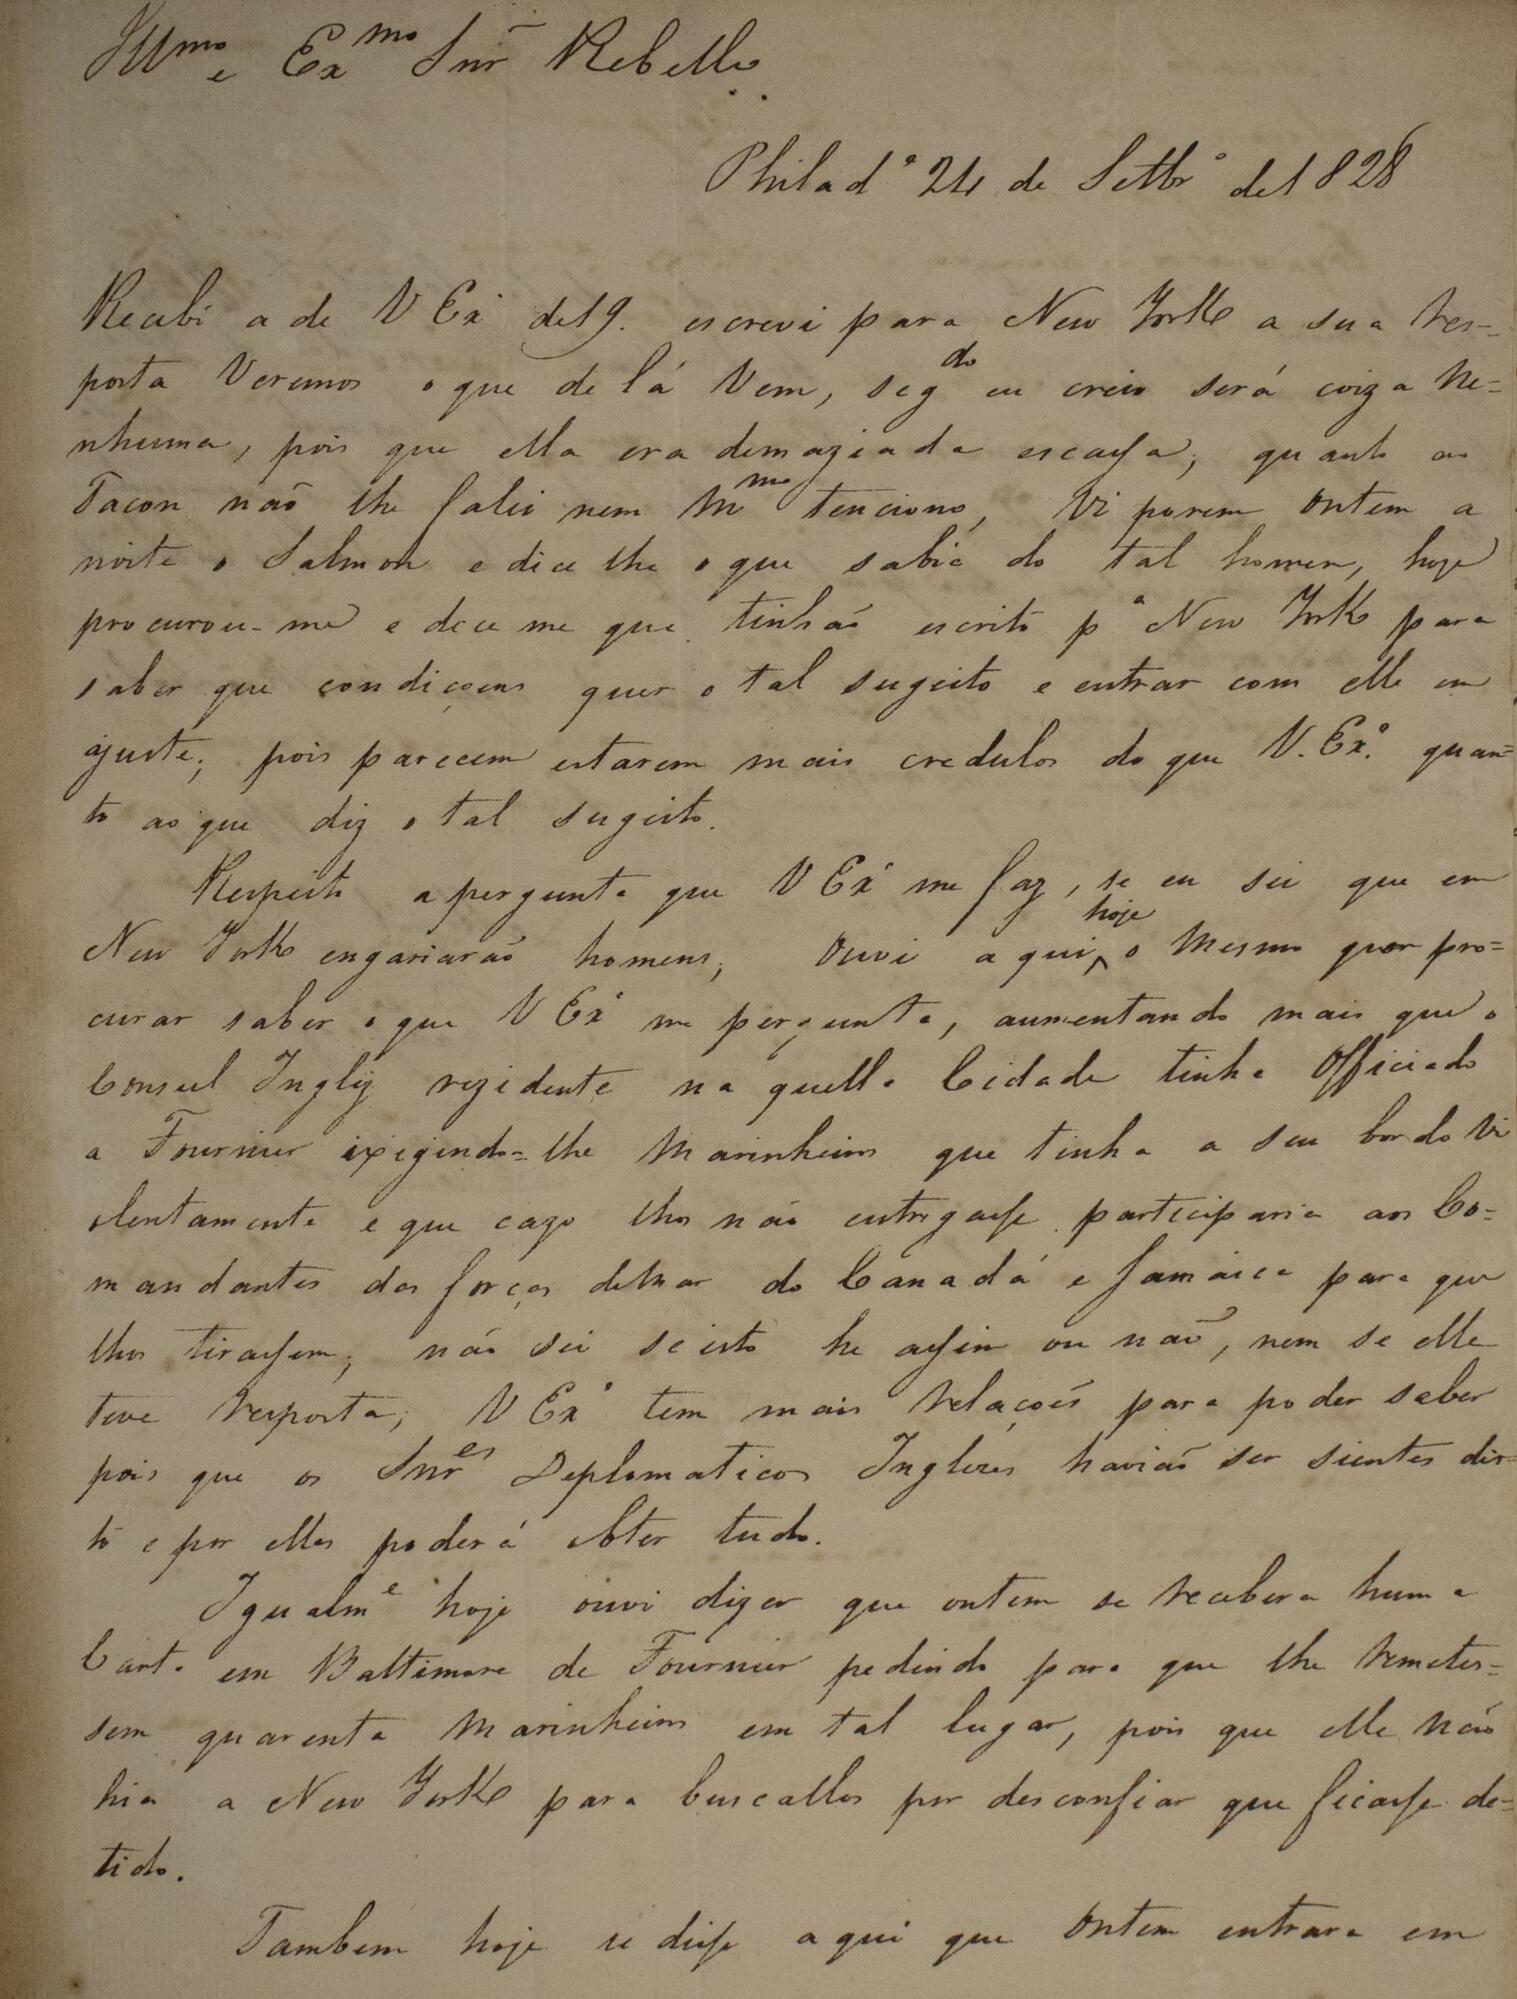 Illmo e Exmo Snr Rebello
Philada 24 de Settbro de 1828
Recebi a de V Exa de 19. escrevi para New York a sua res=
posta veremos o que de lá vem, segdo eu creio será coiza ne=
nhuma, pois que ella era demaziada escassa; quanto ao
Tacon não lhe falei nem mmo tenciono, vi porem ontem a
noite o Salmon e dice lhe o que sabia do tal homem, hoje
procurou-me e dice me que tinhão escrito pa New York para
saber que condiçoens quer o tal sugeito e entrar com elle em
ajuste; pois parecem estarem mais credulos do que V. Exa. quan=
to ao que diz o tal sugeito.
Respeito a pergunta que V Exa me faz, se eu sei que em
New York engariarão homens; ouvi aqui hoje o mesmo quer pro=
curar saber o que V Exa me pergunta, aumentando mais que o
Consul Inglez rezidente na quella Cidade tinha officiado
a Fournier ixigindo=lhe Marinheiros que tinha a seu bordo vi
olentamente e que cazo lhos não entregasse participaria aos Co=
mandantes das forças de Mar do Canadá e Jamaica para que
lhos tirassem; não sei se isto he assim ou não, nem se elle
teve resposta; V Exa tem mais relações para poder saber
pois que os Snres Deplomaticos Inglezes havião ser sientes dis=
to e por elles poderá obter tudo.
Igualme hoje ouvi dizer que ontem se recebera huma
Carta em Baltimore de Fournier pedindo para que lhe remetes=
sem quarenta Marinheiros em tal lugar, pois que elle não
hia a New York para buscallos por desconfiar que ficasse de=
tido.
Tambem hoje se disse aqui que ontem entrara em